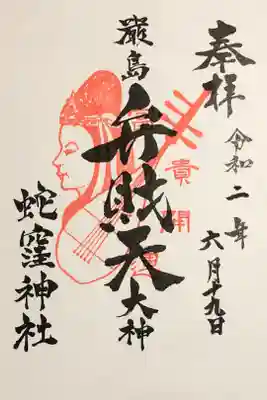 奉拝
令和二年
六月十九日
厳島
弁財天
大神
蛇窪神社